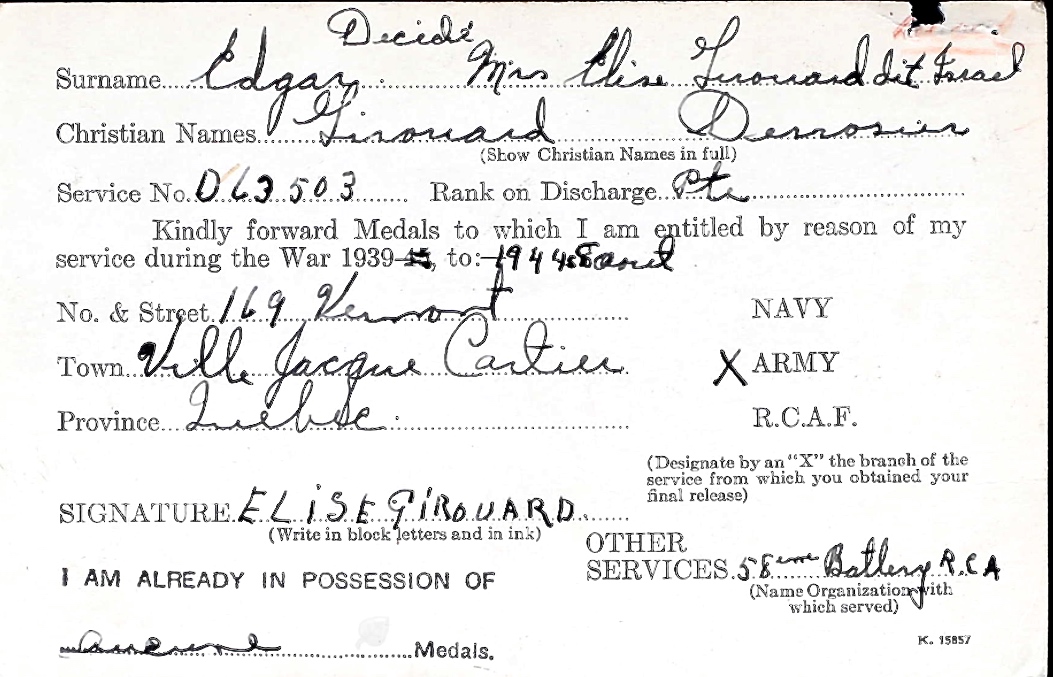 Decidé
Surname Edgar Mrs Elise Girouard dit Israel
Christian Names Girouard Derrosier
(Show Christian Names in full)
Service No. D63503 Rank on Discharge Pte
Kindly forward Medals to which I am entitled by reason of my
service during the War 1939-45, to:- 1944 8 aout
No. & Street 169 Vermont NAVY
Town Ville Jacque Cartier X ARMY
Province Quebec R.C.A.F.
(Designate by an "X" the branch of the
service from which you obtained your
final release)
SIGNATURE ELISE GIROUARD
(Write in block letters and in ink)
OTHER
SERVICES 58eme Battery R.C.A
(Name Organization with
which served)
I AM ALREADY IN POSSESSION OF
aucune Medals.
K. 15857